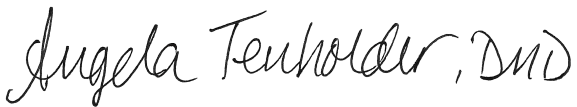 Angela Tenholder, DMD